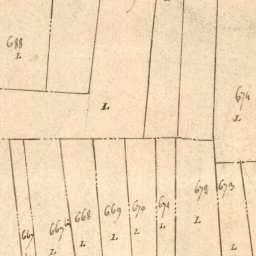 688
L
L
674
L
667
L
667½
L
668
L
669
L
670
L
671
L
672
L
673
L